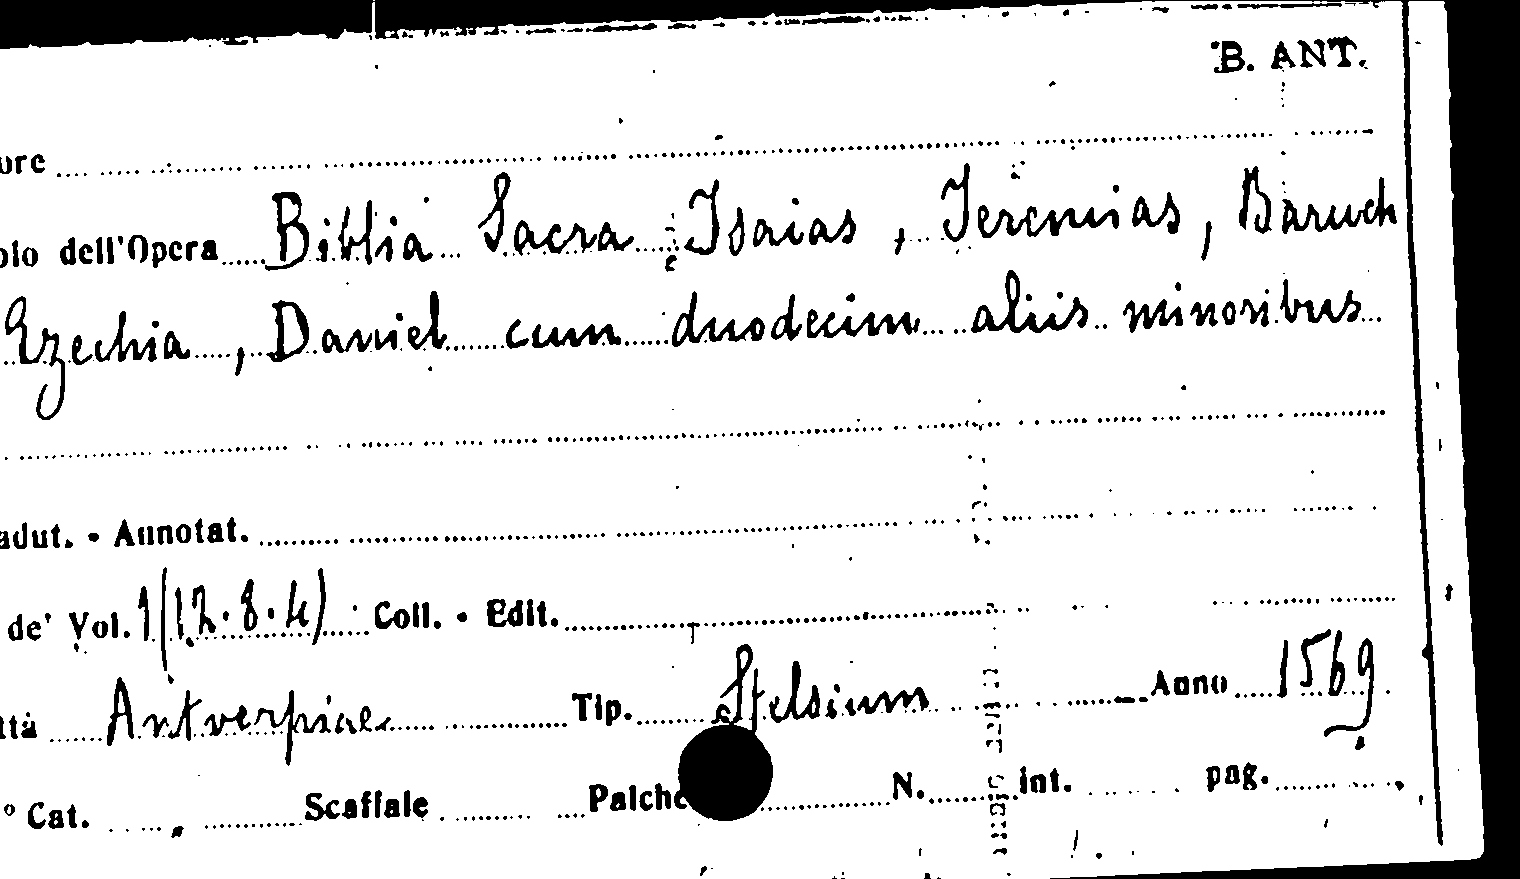 B. ANT.
ore
olo dell'Opera Biblia Sacra : Isaias, Jeremias, Baruch
Ezechia, Daniel cum duodecim aliis minoribus
adut. • Annotat.
de' Vol. 1 (12.8.4) Coll. • Edit.
ttà Antverpiae Tip. Stelsium Anno 1569
° Cat. Scaffale Palche N. int. pag.